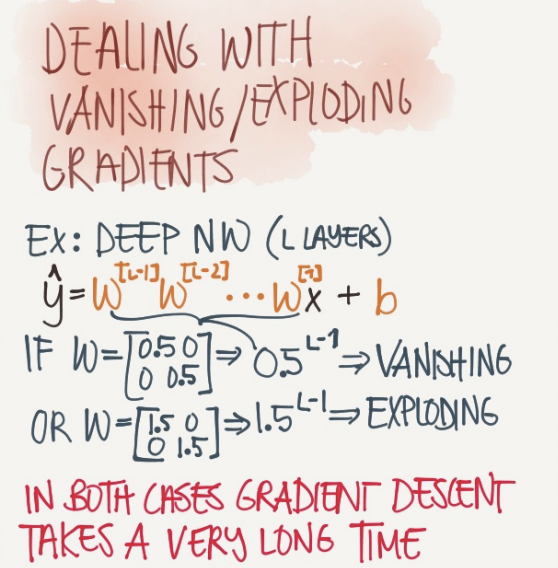 DEALING WITH
VANISHING/EXPLODING
GRADIENTS
EX: DEEP NW (L LAYERS)
ŷ = W^[L-1] W^[L-2] ... W^[1] x + b
IF W = [0.5 0 0 0.5] ⇒ 0.5^L-1 ⇒ VANISHING
OR W = [1.5 0 0 1.5] ⇒ 1.5^L-1 ⇒ EXPLODING
IN BOTH CASES GRADIENT DESCENT
TAKES A VERY LONG TIME